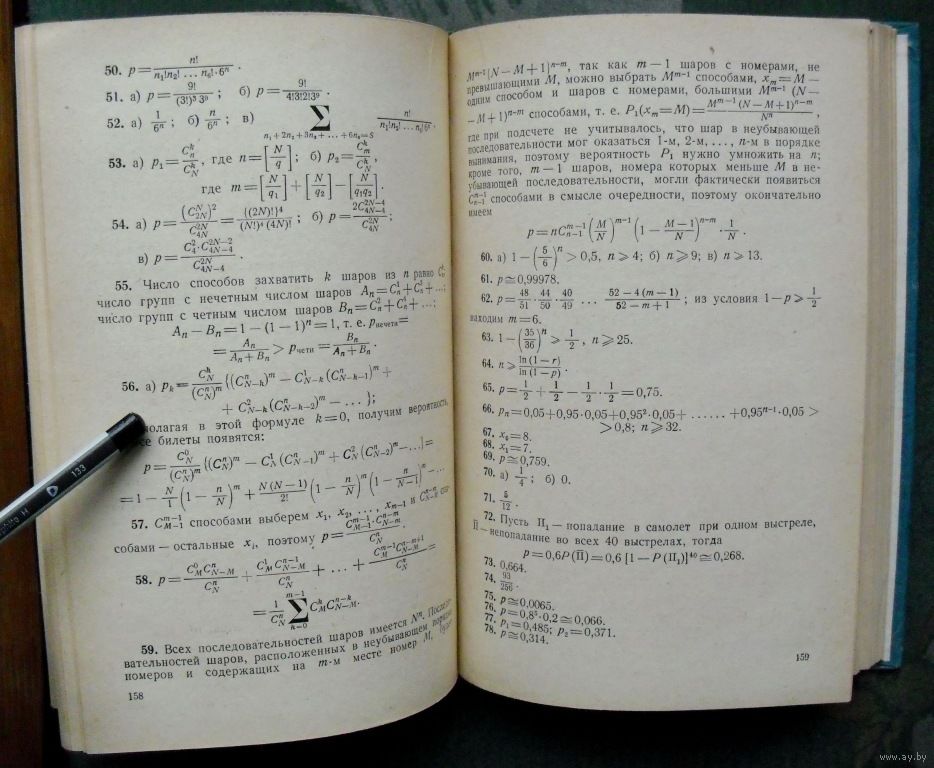 50. p = n! / (n₁!n₂! … n₆!·6ⁿ) .
51. а) p = 9! / ((3!)³ 3⁹) ; б) p = 9! / (4!3!2!3⁹) .
52. а) 1/6ⁿ ; б) n/6ⁿ ; в) ∑ n! / (n₁!n₂! … n₆!6ⁿ)
n₁+2n₂+3n₃+ … +6n₆=S
53. а) p₁ = Cₙᵏ / C_Nᵏ , где n = [N/q] ; б) p₂ = Cₘᵏ / C_Nᵏ ,
где m = [N/q₁] + [N/q₂] − [N/q₁q₂]
54. а) p = (C_{2N}^N)² / C_{4N}^{2N} = {(2N)!}⁴ / ((N!)⁴ (4N)!) ; б) p = 2C_{4N−4}^{2N−4} / C_{4N}^{2N} ;
в) p = C₄²·C_{4N−4}^{2N−2} / C_{4N−4}^{2N} .
55. Число способов захватить k шаров из n равно Cₙᵏ;
число групп с нечетным числом шаров Aₙ = Cₙ¹ + Cₙ³ + …;
число групп с четным числом шаров Bₙ = Cₙ² + Cₙ⁴ + …;
Aₙ − Bₙ = 1 − (1 − 1)ⁿ = 1, т. е. p нечетн =
= Aₙ / (Aₙ + Bₙ) > p четн = Bₙ / (Aₙ + Bₙ) .
56. а) pₖ = C_Nᵏ / (C_Nⁿ)ᵐ {(C_{N−k}ⁿ)ᵐ − C_{N−k}¹ (C_{N−k−1}ⁿ)ᵐ +
+ C_{N−k}² (C_{N−k−2}ⁿ)ᵐ − … };
полагая в этой формуле k = 0, получим вероятность,
все билеты появятся:
p = C_N⁰ / (C_Nⁿ)ᵐ {(C_Nⁿ)ᵐ − C_N¹ (C_{N−1}ⁿ)ᵐ + C_N² (C_{N−2}ⁿ)ᵐ − …} =
= 1 − N/1 (1 − n/N)ᵐ + N(N − 1)/2! (1 − n/N)ᵐ (1 − n/(N−1))ᵐ − …
57. C_{M−1}^{m−1} способами выберем x₁, x₂, …, x_{m−1} и C_{N−M}^{n−m} спо-
собами — остальные xᵢ, поэтому p = C_{M−1}^{m−1}·C_{N−M}^{n−m} / C_Nⁿ .
58. p = C_M⁰ C_{N−M}ⁿ / C_Nⁿ + C_M¹ C_{N−M}^{n−1} / C_Nⁿ + … + C_M^{m−1} C_{N−M}^{n−m+1} / C_Nⁿ =
= 1/C_Nⁿ ∑_{k=0}^{m−1} C_Mᵏ C_{N−M}^{n−k} .
59. Всех последовательностей шаров имеется Nⁿ. Последо-
вательностей шаров, расположенных в неубывающем порядке
номеров и содержащих на m-м месте номер M, будет
158
M^{m−1} (N − M + 1)^{n−m}, так как m − 1 шаров с номерами, не
превышающими M, можно выбрать M^{m−1} способами, xₘ = M —
одним способом и шаров с номерами, большими M^{m−1} (N —
— M + 1)^{n−m} способами, т. е. P₁(xₘ = M) = M^{m−1} (N − M + 1)^{n−m} / Nⁿ ,
где при подсчете не учитывалось, что шар в неубывающей
последовательности мог оказаться 1-м, 2-м, …, n-м в порядке
вынимания, поэтому вероятность P₁ нужно умножить на n;
кроме того, m — 1 шаров, номера которых меньше M в не-
убывающей последовательности, могли фактически появиться
C_{n−1}^{m−1} способами в смысле очередности, поэтому окончательно
имеем
p = nC_{n−1}^{m−1} (M/N)^{m−1} (1 − (M − 1)/N)^{n−m} · 1/N .
60. а) 1 − (5/6)ⁿ > 0,5, n ⩾ 4; б) n ⩾ 9; в) n ⩾ 13.
61. p ≅ 0,99978.
62. p = 48/51 · 44/50 · 40/49 … (52 − 4 (m − 1)) / (52 − m + 1) ; из условия 1 − p ⩾ 1/2
находим m = 6.
63. 1 − (35/36)ⁿ ⩾ 1/2 , n ⩾ 25.
64. n ⩾ ln (1 − r) / ln (1 − p) .
65. p = 1/2 + 1/2 − 1/2 · 1/2 = 0,75.
66. pₙ = 0,05 + 0,95·0,05 + 0,95²·0,05 + …… + 0,95ⁿ⁻¹·0,05 >
> 0,8; n ⩾ 32.
67. x₄ = 8.
68. x₁ = 7.
69. p ≅ 0,759.
70. а) 1/4 ; б) 0.
71. 5/12 .
72. Пусть П₁ — попадание в самолет при одном выстреле,
П̄ — непопадание во всех 40 выстрелах, тогда
p = 0,6P (П̄) = 0,6 [1 − P (П₁)]⁴⁰ ≅ 0,268.
73. 0,664.
74. 93/256 .
75. p ≅ 0,0065.
76. p = 0,8⁵·0,2 ≅ 0,066.
77. p₁ = 0,485; p₂ = 0,371.
78. p ≅ 0,314.
159
133
www.ay.by